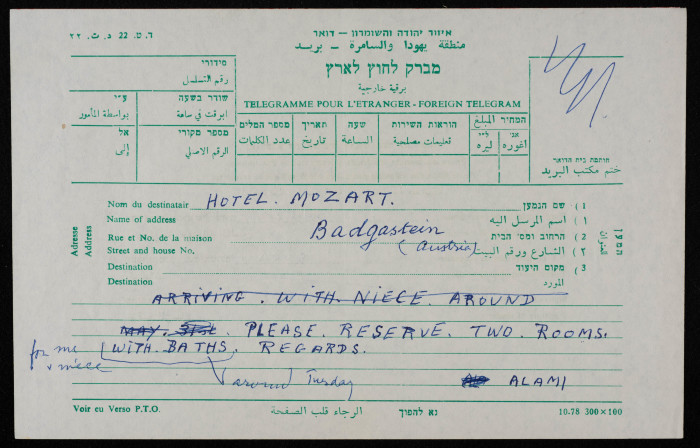 ד.ט. 22 د.ت. ٢٢
איזור יהודה והשומרון – דואר
منطقة يهودا والسامرة – بريد
מברק לחוץ לארץ
برقية خارجية
TELEGRAMME POUR L'ETRANGER - FOREIGN TELEGRAM
סידורי
رقم التسلسل
ע״י
بواسطة المأمور
שודר בשעה
ابرقت في ساعة
אל
إلى
מספר מקורי
الرقم الاصلي
מספר המלים
عدد الكلمات
תאריך
تاريخ
שעה
الساعة
הוראות השירות
تعليمات مصلحية
המחיר المبلغ
ל״י
ليره
אג׳
اغوره
חותמת בית הדואר
ختم مكتب البريد
Adresse
Address
המען
العنوان
Nom du destinatair HOTEL. MOZART. 1) שם הנמען
Name of address ١) اسم المرسل اليه
Rue et No. de la maison Badgastein 2) הרחוב ומס׳ הבית
Street and house No. (Austria) ٢) الشارع ورقم البيت
Destination 3) מקום היעוד
Destination المورد
ARRIVING. WITH. NIECE. AROUND
MAY. 31st. PLEASE. RESERVE. TWO. ROOMS.
for me & niece WITH. BATHS. REGARDS.
around Tuesday ALAMI
Voir eu Verso P.T.O. الرجاء قلب الصفحة נא להפוך 10.78 300×100